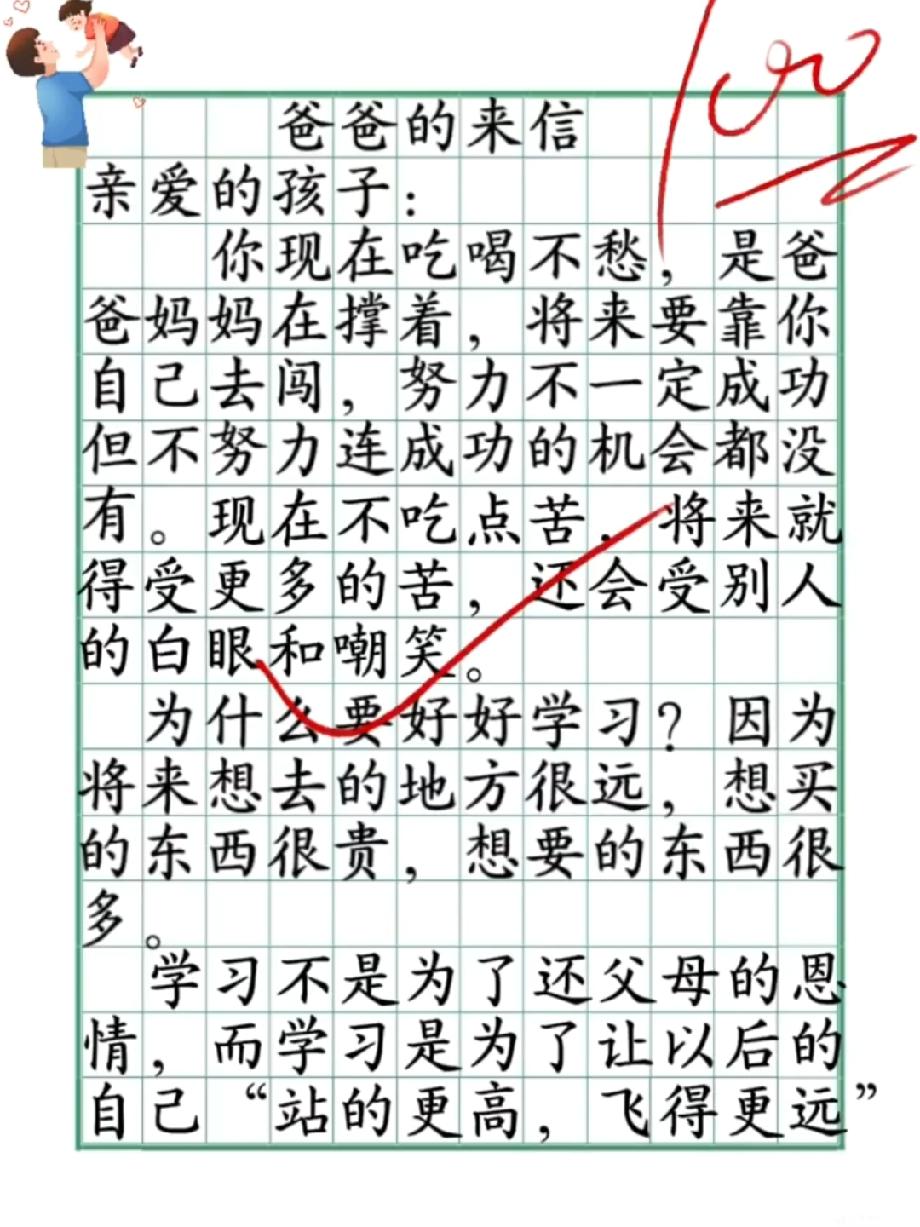 100
爸爸的来信
亲爱的孩子：
你现在吃喝不愁，是爸
爸妈妈在撑着，将来要靠你
自己去闯，努力不一定成功
但不努力连成功的机会都没
有。现在不吃点苦，将来就
得受更多的苦，还会受别人
的白眼和嘲笑。
为什么要好好学习？因为
将来想去的地方很远，想买
的东西很贵，想要的东西很
多。
学习不是为了还父母的恩
情，而学习是为了让以后的
自己“站的更高，飞得更远”